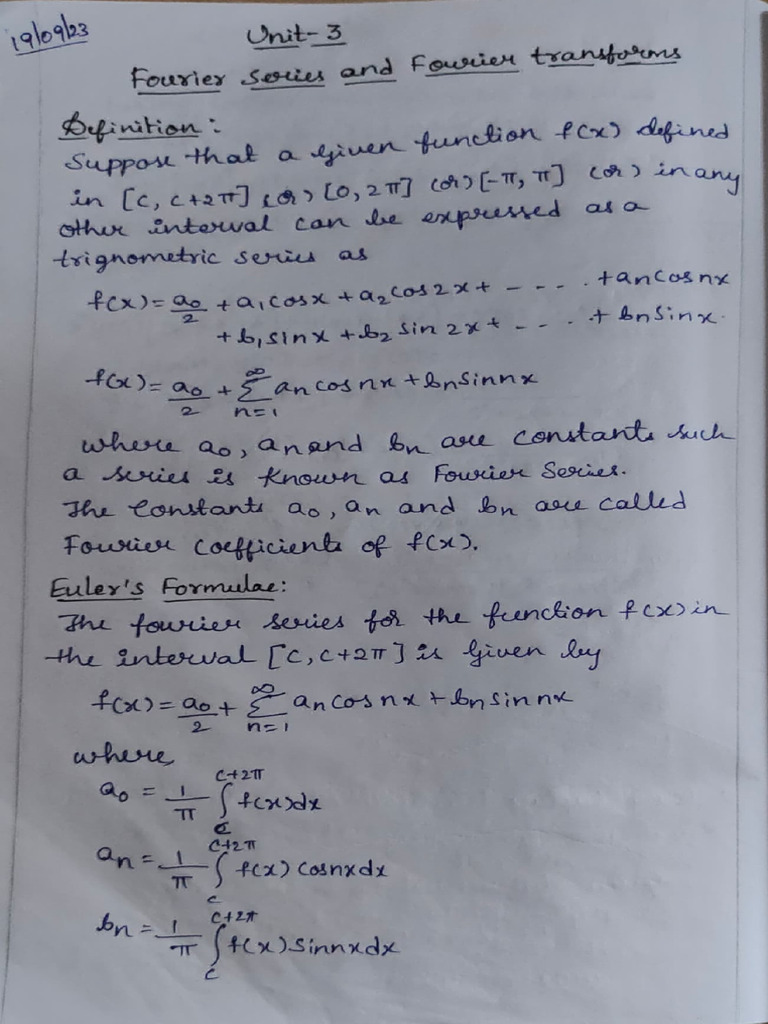 19/09/23
Unit-3
Fourier Series and Fourier transforms
Definition:
Suppose that a given function f(x) defined
in [c, c+2π] (or) [0, 2π] (or) [-π, π] (or) in any
other interval can be expressed as a
trignometric series as
f(x) = a₀/2 + a₁cosx + a₂cos2x + - - - . + aₙcosnx
+ b₁sinx + b₂ sin 2x + - - . + bₙsinx.
f(x) = a₀/2 + ∑_{n=1}^{∞} aₙcosnx + bₙsinnx
where a₀, aₙ and bₙ are constants such
a series is known as Fourier Series.
The Constants a₀, aₙ and bₙ are called
Fourier Coefficients of f(x).
Euler's Formulae:
The fourier series for the function f(x) in
the interval [c, c+2π] is given by
f(x) = a₀/2 + ∑_{n=1}^{∞} aₙcosnx + bₙsinnx
where
a₀ = 1/π ∫_{c}^{c+2π} f(x)dx
aₙ = 1/π ∫_{c}^{c+2π} f(x) cosnxdx
bₙ = 1/π ∫_{c}^{c+2π} f(x) sinnxdx